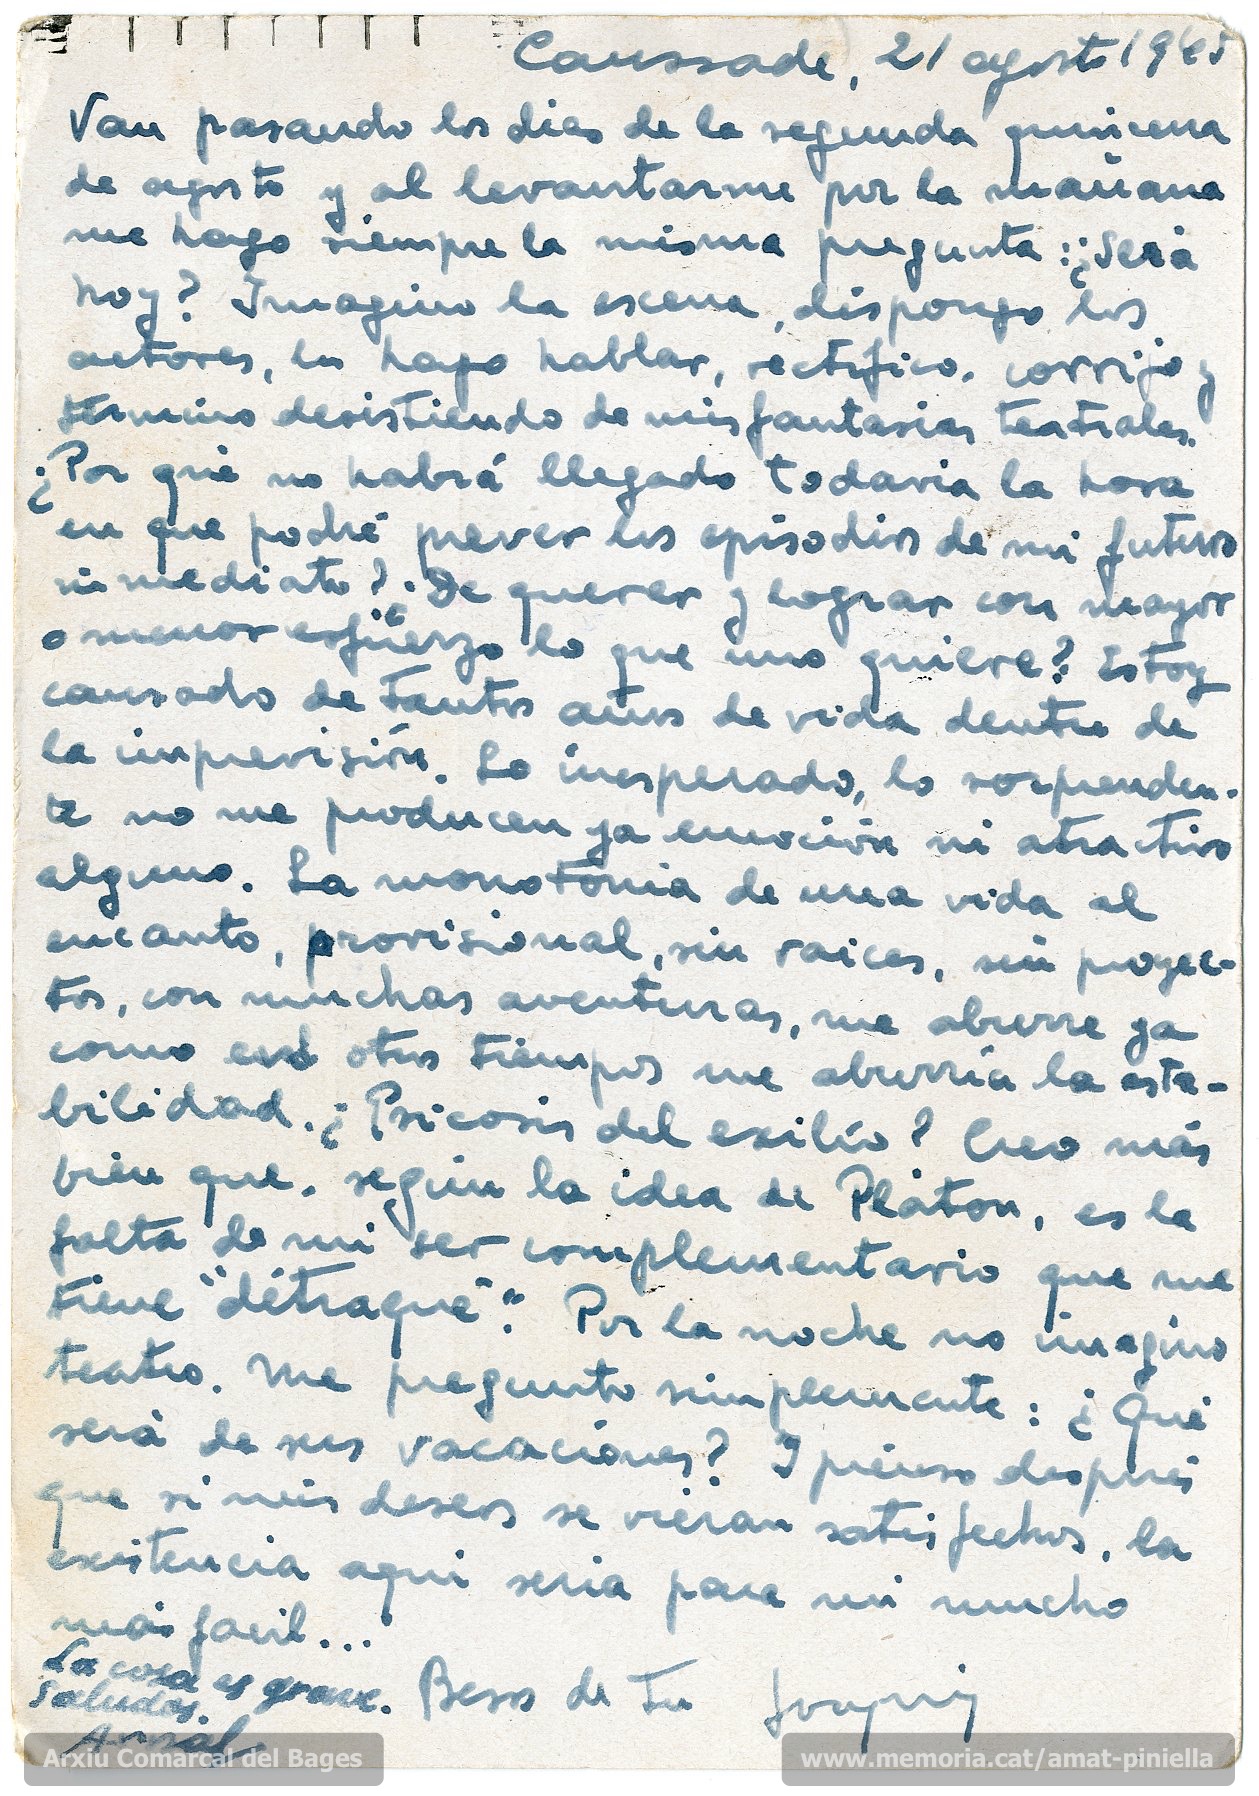 Caussade, 21 agosto 1945
Van pasando los dias de la segunda quincena
de agosto y al levantarme por la mañana
me hago siempre la misma pregunta: ¿Será
hoy? Imagino la escena, dispongo los
actores, los hago hablar, rectifico, corrijo y
termino desistiendo de mis fantasias teatrales.
¿Por qué no habrá llegado todavia la hora
en que podré prever los episodios de mi futuro
inmediato? De querer y lograr con mayor
o menor esfuerzo lo que uno quiere? Estoy
cansado de tantos años de vida dentro de
la imprevisión. Lo inesperado, lo sorprenden-
te no me producen ya emoción ni atractivo
alguno. La monotonia de una vida al
encanto, provisional, sin raices, sin proyec-
tos, con muchas aventuras, me aburre ya
como en otros tiempos me aburría la esta-
bilidad. ¿Psicosis del exilio? Creo más
bien que, según la idea de Platon, es la
falta de mi ser complementario que me
tiene "détraqué". Por la noche no imagino
teatro. Me pregunto simplemente: ¿Qué
será de sus vacaciones? I pienso después
que si mis deseos se vieran satisfechos, la
existencia aqui seria para mi mucho
más facil...
La cosa es grave. Besos de tu Joaquin
Saludos.
Arnal
Arxiu Comarcal del Bages
www.memoria.cat/amat-piniella